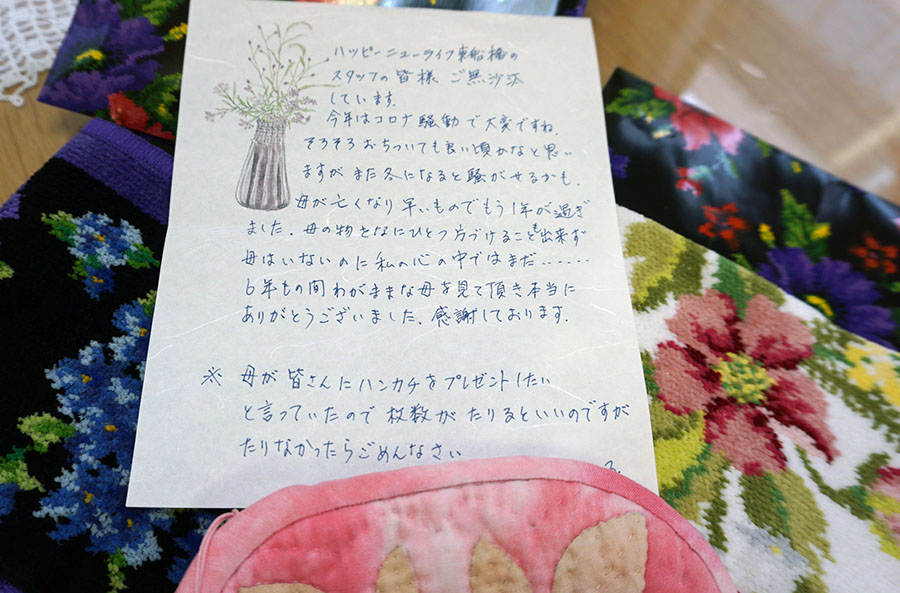 ハッピーニューライフ東船橋の
スタッフの皆様 ご無沙汰
しています.
今年はコロナ騒動で大変ですね.
そろそろおちついても良い頃かなと思い
ますがまた冬になると騒がせるかも.
母が亡くなり早いものでもう1年が過ぎ
ました. 母の物をなにひとつ方づけること出来ず
母はいないのに私の心の中ではまだ……
6年もの間わがままな母を見て頂き本当に
ありがとうございました. 感謝しております.
※ 母が皆さんにハンカチをプレゼントしたい
と言っていたので枚数がたりるといいのですが
たりなかったらごめんなさい